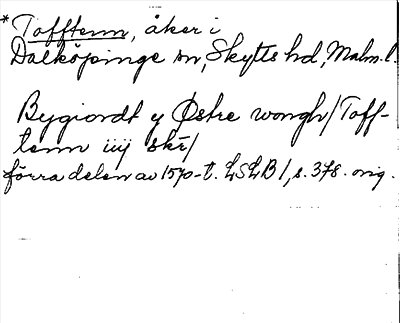 * Tofftenn, åker i
Dalköpinge sn, Skytts hd, Malm. l.
Bygiordt y Østre wongh/Toff-
tenn iiij skr/
förra delen av 1570-t. LSLB 1, s. 378. orig.